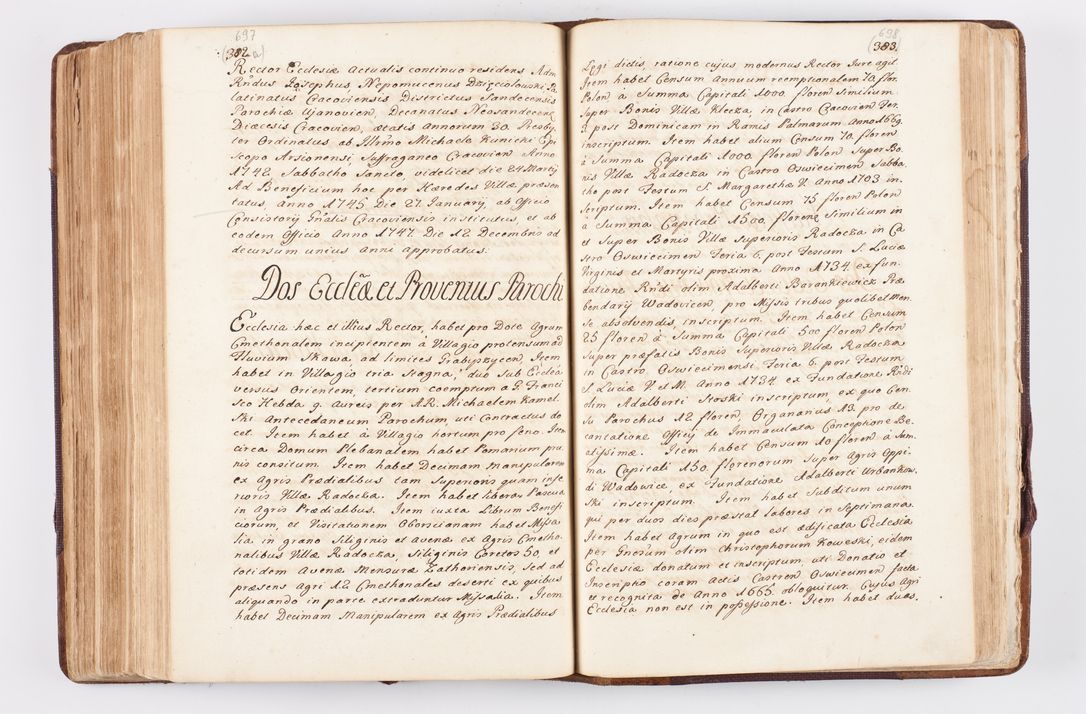 697
(382 a)
Rector Ecclesiæ Actualis continuo residens Adm
Rndus Josephus Nepomucenus Dzięciolowski Pa
latinatus Cracoviensis Districtus Sandecensis
Parochiæ Ujanovien, Decanatus Neosandecens
Diæcesis Cracovien, ætatis Annorum 30. Presby
ter Ordinatus, ab Illrmo Michaele Kunicki Epi
scopo Arsionensi Suffraganeo Cracovien Anno
1742. Sabbatho Sancto, videlicet die 24 Martij
Ad Beneficium hoc per Hæredes Villæ præsen
tatus Anno 1745. Die 27. Januarij, ab Officio
Consistorij Gnalis Cracoviensis institutus, et ab
eodem Officio Anno 1747. Die 12 Decembris ad
decursum unius anni approbatus.
Dos Ecclæ et Proventus Parochi
Ecclesia hæc et illius Rector, habet pro Dote Agrum
Cmethonalem incipientem à Villagio protensum ad
Fluvium Skawa ad limites Grabyszycen, Item
habet in Villagio tria Stagna, duo sub Ecclesia
versus Orientem, tertium coemptum a P. Franci
sco Kebda g. Aureis per A.R. Michaelem Kamel
ski Antecedaneum Parochum, uti Contractus do
cet. Item habet à Villagio hortum pro feno. Item
circa Domum Plebanalem habet Pomarium pru
nis consitum. Item habet Decimam manipularem
ex Agris Prædialibus tam Superioris quam infe
rioris Villæ Radocza. Item habet libera Pascua
in Agris Prædialibus. Item iuxta Librum Benefi
ciorum, et Visitationem Oborscianam habet Missa
lia in grano Siliginis et Avenæ ex Agris Cmetho
nalibus Villæ Radocza, Siliginis Coretos 50, et
totidem Avenæ Mensuræ Zathoriensis, sed ad
præsens agri 12 Cmethonales deserti ex quibus
aliquando in parte extraduntur Missalia. Item
habet Decimam Manipularem ex Agris Prædialibus
698
(383)
Legi dictis, ratione cujus modernus Rector Jure agit.
Item habet Censum Annuum reemptionalem 70. flor.
Polon à Summa Capitali 1000. floren Similium
Super Bonis Villæ Klecza, in Castro Cracovien Fer.
2 post Dominicam in Ramis Palmarum Anno 1669.
inscriptum. Item habet alium Censum 70. floren
à Summa Capitali 1000. floren Polon Super Bo
nis Villæ Radocza in Castro Oswiecimen Sabba
tho post Festum S. Margarethæ V. Anno 1703 in
scriptum. Item habet Censum 75 floren Polon
à Summa Capitali 1500. florenę Similium in
et Super Bonis Villæ Superioris Radocza in Ca
stro Oswiecimen Feria 6. post Festum S. Luciæ
Virginis et Martyris proxima Anno 1734. ex fun
datione Rndi olim Adalberti Barankiewicz Præ
bendarij Wadovicen, pro Missis tribus quolibet Men
se absolvendis, inscriptum. Item habet Censum
25 floren à Summa Capitali 500 floren Polon
Super præfatis Bonis Superioris Villæ Radocza
in Castro Oswiecimensi Feria 6. post Festum
S. Luciæ V. et M. Anno 1734. ex Fundatione Rndi
olim Adalberti Stoski inscriptum, ex quo Cen
su Parochus 12 floren, Organarius 13. pro de
cantatione Officij de Immaculata Conceptione Be
atissimæ. Item habet Censum 10 floren à Sum
ma Capitali 150. florenorum Super Agris Oppi
di Wadowice, ex Fundatione Adalberti Urbankow
ski inscriptum. Item habet Subditum unum
qui per duos dies præstat labores in Septimana.
Item habet Agrum in quo est ædificata Ecclesia
per Gnosum olim Christophorum Koweski, eidem
Ecclesiæ donatum et inscriptum, uti Donatio et
Inscriptio coram Actis Castren Oswiecimen facta
et recognita de Anno 1665. obloquitur. Cujus Agri
Ecclesia non est in possessione. Item habet duas.